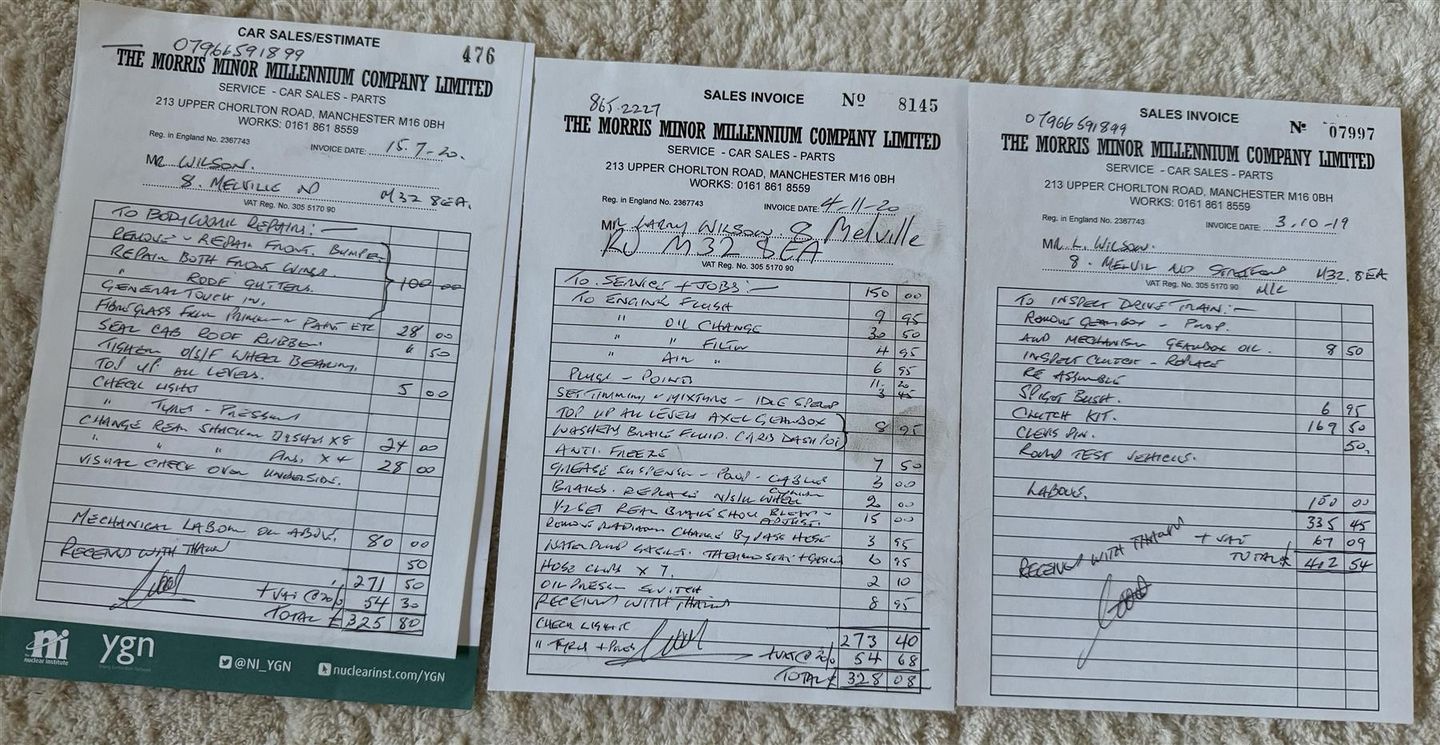 CAR SALES/ESTIMATE
476
07966591899
THE MORRIS MINOR MILLENNIUM COMPANY LIMITED
SERVICE - CAR SALES - PARTS
213 UPPER CHORLTON ROAD, MANCHESTER M16 0BH
WORKS: 0161 861 8559
Reg. in England No. 2367743
INVOICE DATE: 15.7-20.
MR WILSON.
8. MELVILLE RD M32 8EA.
VAT Reg. No. 305 5170 90
TO BODYWORK REPAIRS:-
REMOVE - REPAIR FRONT. BUMPER
REPAIR BOTH FRONT WINGS
" ROOF GUTTERS. 100 00
GENERAL TOUCH IN.
FIBREGLASS FILLER PRIMER - PAINT ETC 28 00
SEAL CAB ROOF RUBBER 6 50
TIGHTEN O/S/F WHEEL BEARING.
TOP UP ALL LEVELS. 5 00
CHECK LIGHTS
" TYRES - PRESSURES
CHANGE REAR SHACKLE BUSHES X8 24 00
" " PINS X4 28 00
VISUAL CHECK OVER UNDERSIDE.
MECHANICAL LABOUR ON ABOVE. 80 00
RECEIVED WITH THANKS 50
271 50
+ VAT @ 20% 54 30
TOTAL £ 325 80
ni
nuclear institute
ygn
@NI_YGN
nuclearinst.com/YGN
SALES INVOICE
Nº 8145
865.2227
THE MORRIS MINOR MILLENNIUM COMPANY LIMITED
SERVICE - CAR SALES - PARTS
213 UPPER CHORLTON ROAD, MANCHESTER M16 0BH
WORKS: 0161 861 8559
Reg. in England No. 2367743
INVOICE DATE: 4-11-20
Mr LARRY WILSON. 8 Melville
RD M32 8EA
VAT Reg. No. 305 5170 90
TO. SERVICE + JOBS:- 150 00
TO ENGINE FLUSH 9 95
" OIL CHANGE 30 50
" " FILTER 4 95
" AIR " 6 95
PLUGS - POINTS 11. 20
SET TIMING & MIXTURE - IDLE SPEED 3 45
TOP UP ALL LEVELS AXEL GEARBOX
WASHERS BRAKE FLUID. CARB DASHPOT 8 95
ANTI-FREEZE 7 50
GREASE SUSPENSION - PROP - CABLES 3 00
BRAKES. REPLACE N/S/R WHEEL CYLINDER 2 00
1/2 SET REAR BRAKE SHOES BLEED - ADJUST 15 00
REMOVE RADIATOR CHANGE BYPASS HOSE 3 95
WATER PUMP GASKET. THERMOSTAT + GASKET 6 95
HOSE CLIPS X 7. 2 10
OIL PRESSURE SWITCH 8 95
RECEIVED WITH THANKS
CHECK LIGHTS 273 40
" TYRES + PRESS +VAT @ 20% 54 68
TOTAL £ 328 08
SALES INVOICE
Nº 07997
07966591899
THE MORRIS MINOR MILLENNIUM COMPANY LIMITED
SERVICE - CAR SALES - PARTS
213 UPPER CHORLTON ROAD, MANCHESTER M16 0BH
WORKS: 0161 861 8559
Reg. in England No. 2367743
INVOICE DATE: 3.10-19
MR L. WILSON.
8. MELVIL RD STRETFORD M32.8EA
VAT Reg. No. 305 5170 90 M/C
TO INSPECT DRIVE TRAIN:-
REMOVE GEARBOX - PROP.
AND MECHANISM GEARBOX OIL. 8 50
INSPECT CLUTCH - REPLACE
RE ASSEMBLE
SPIGOT BUSH. 6 95
CLUTCH KIT. 169 50
CLEVIS PIN. 50.
ROAD TEST VEHICLE.
LABOUR. 150 00
335 45
RECEIVED WITH THANKS + VAT 67 09
TOTAL £ 402 54